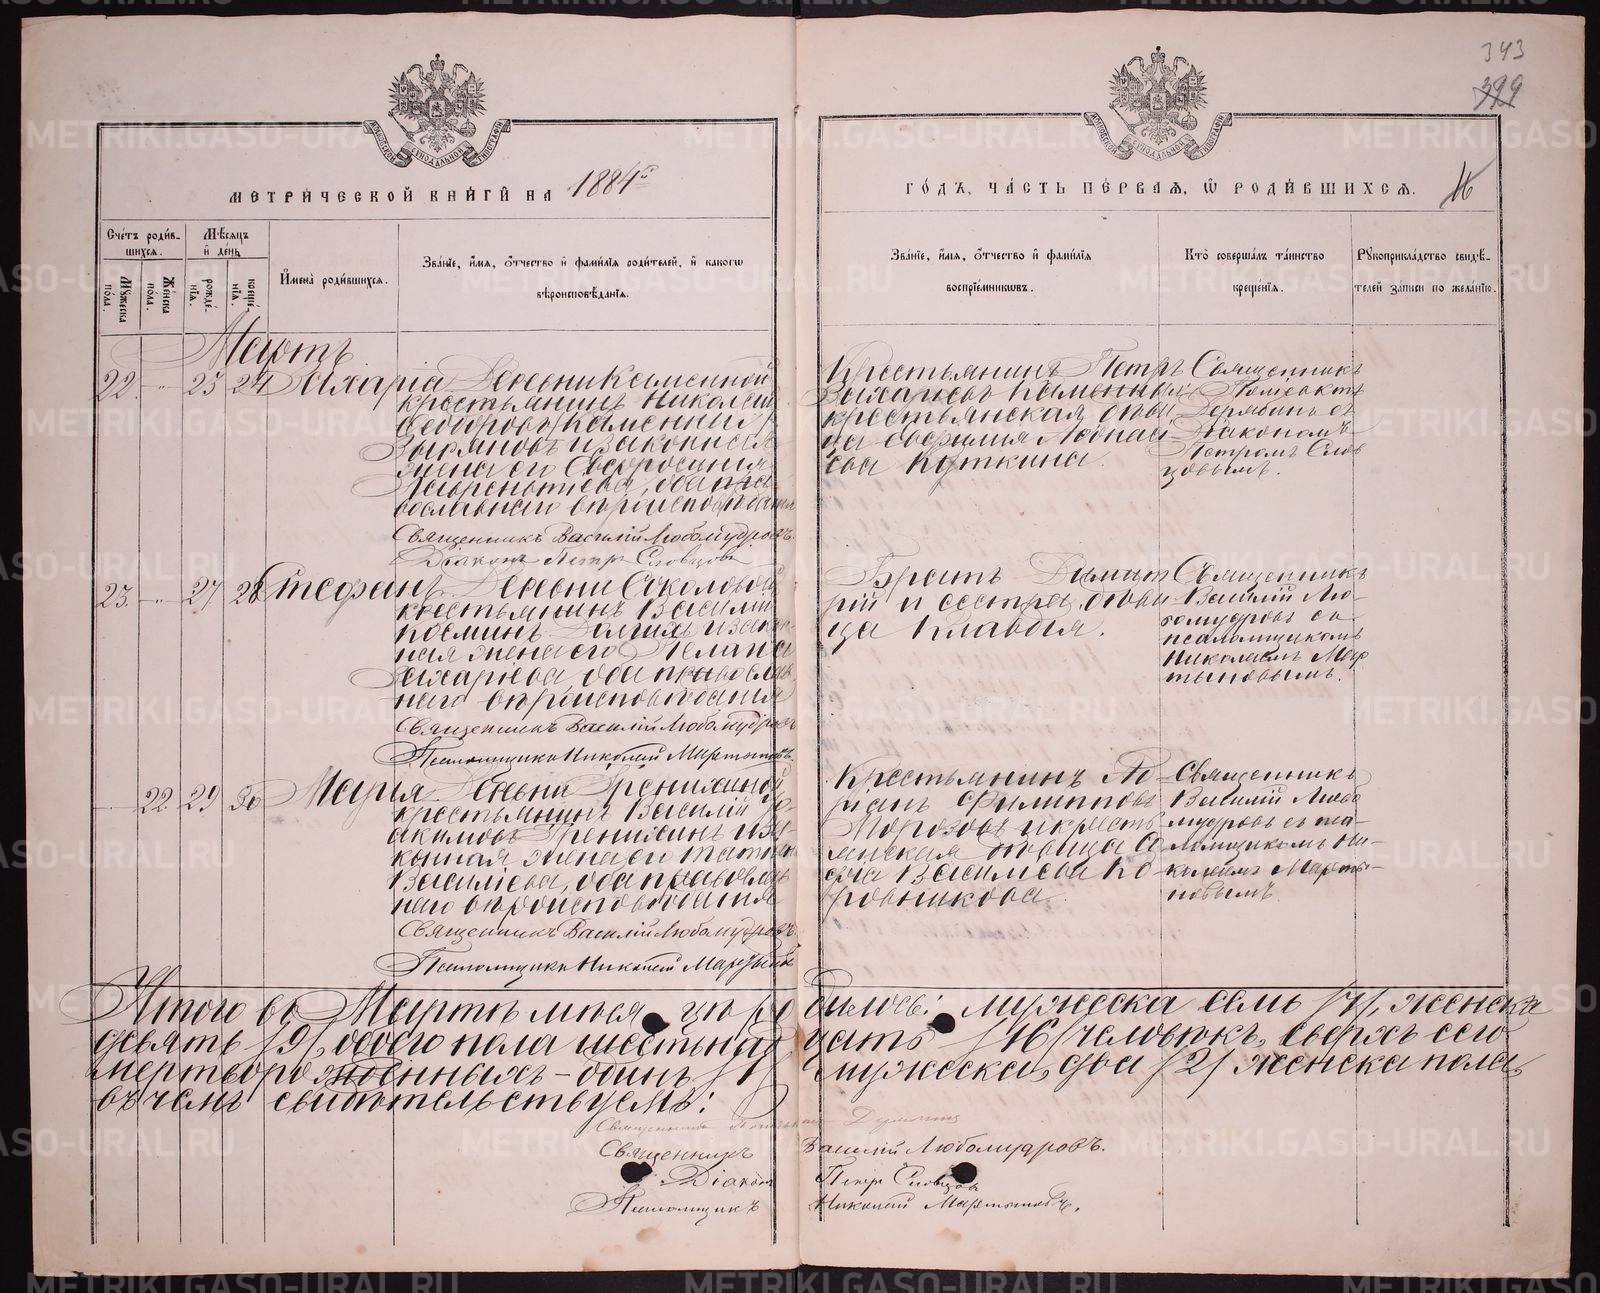 343
399
МЕТРИЧЕСКОЙ КНИГИ НА 1884 г
ГОДЪ, ЧАСТЬ ПЕРВАЯ, Ѡ РОДИВШИХСЯ. 16
Счетъ родив-
шихся.
Мѣсяцъ
и день
Мужеска пола.
Женска пола.
рожде-
нія.
креще-
нія.
Имена родившихся.
Званіе, имя, отчество и фамилія родителей, и какогѡ
вѣроисповѣданія.
Званіе, имя, отчество и фамилія
воспріемниковъ.
Кто совершалъ таинство
крещенія.
Рукоприкладство свидѣ-
телей записи по желанію.
Мартъ
22 25 24 Захарія Деревни Каменной
крестьянинъ Николай
Ѳеодоровъ Каменный
и законная
жена его Евфросинія
Лаврентьева, оба пра
вославнаго вѣроисповѣданія
Священникъ Василій Любомудровъ.
Діаконъ Петръ Словцовъ
Крестьянинъ Петръ
Захаровъ Каменныхъ
крестьянская дѣви
ца Евфимія
ева Кункина.
Священникъ
Дерябинъ съ
Діакономъ
Петромъ Слов
цовымъ.
23 27 28 Стефанъ Деревни Соколовой
крестьянинъ Василій
Косминъ Долгихъ и закон
ная жена его Пелагія
Захарьева, оба православ
наго вѣроисповѣданія
Священникъ Василій Любомудровъ
Псаломщикъ Николай Мартыновъ
Братъ Димит
рій и сестра, дѣви
ца Клавдія.
Священникъ
Василій Лю-
бомудровъ съ
псаломщикомъ
Николаемъ Мар
тыновымъ.
22 29 30 Марія Деревни Грекиной
крестьянинъ Василій
Акимовъ и за
конная жена его Татьяна
Василіева, оба православ
наго вѣроисповѣданія
Священникъ Василій Любомудровъ
Псаломщикъ Николай Мартыновъ
Крестьянинъ
Филипповъ
Морозовъ и кресть
янская дѣвица
Василіева Ко
ровникова
Священникъ
Василій Любо
мудровъ съ пса-
ломщикомъ Ни-
колаемъ Марты-
новымъ
Итого въ Мартѣ мѣсяцѣ родилось: мужеска семь /7/, женска
девять /9/, обоего пола шестьнадцать /16/ человѣкъ, сверхъ сего
мертворожденныхъ - одинъ /1/ мужеска, два /2/ женска пола,
въ чемъ свидѣтельствуемъ:
Священникъ Василій Любомудровъ.
Діаконъ Петръ Словцовъ
Псаломщикъ Николай Мартыновъ.
METRIKI.GASO-URAL.RU